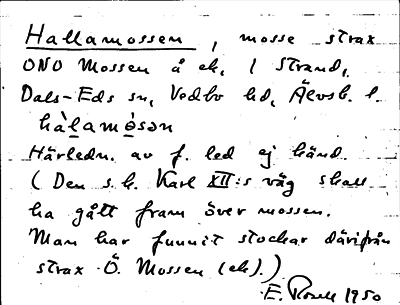 Hallamossen, mosse strax
ONO Mossen å ek. 1 Strand,
Dals-Eds sn, Vedbo hd, Älvsb. l.
hàlamòsən
Härledn. av f. led ej känd.
(Den s.k. Karl XII:s väg skall
ha gått fram över mossen.
Man har funnit stockar därifrån
strax Ö. Mossen (ek).)
E. 1950